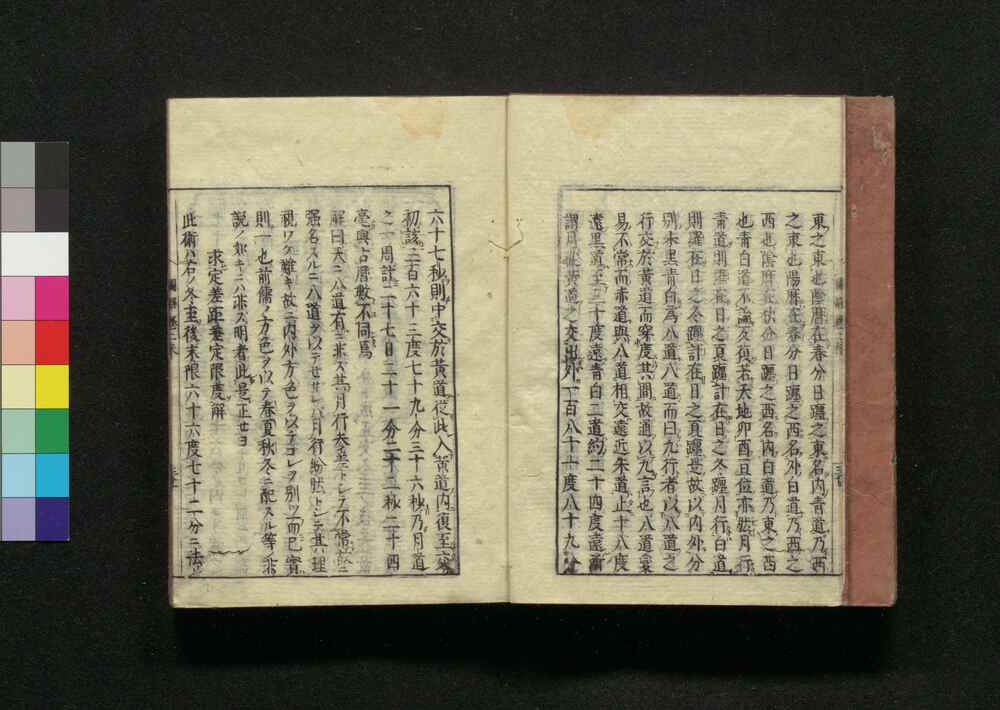 東之東也陰曆在春分日躔之東名內青道乃西
之東也陽曆在春分日躔之西名外白道乃西之
西也陰曆在秋分日躔之西名內白道乃東之西
也青白道不論反復若天地卯酉且位亦然月行
青道則 在日之夏躔計在日之冬躔月行白道
則羅在日之冬躔計在日之夏躔是故以內外分
別朱黑青白為八道八道而曰九行者以八道之
行交於黃道而穿度其間故道以九言也八道 
易不常而赤道與八道相交遠近朱道止十八度
遠黑道至三十度遠青白二道約二十四度遠
謂月 黃道之交出外一百八十一度八十九分
六十七秒則中交於黃道從此入黃道內復至
初該三百六十三度七十九分三十六秒乃月道
之一周計二十七日二十一分二十二秒二十四
毫與占曆數不同焉
解曰天ニ八道有ニ非ス其月行 トシテ不常故ニ
强名スルニ八道ヲ以テセサレハ月行紛然トシテ其理
視ワケ難キ故ニ內外方色ヲ以テコレヲ別ツ而已實
則一也前儒ノ方色ヲ以テ春夏秋冬ニ配スル等ノ
說ノ如キニハ非ス明者此是ヲ正セヨ
求定差距差定限度解
此術ハ右ノ冬至後末限六十六度七十二分ニ法